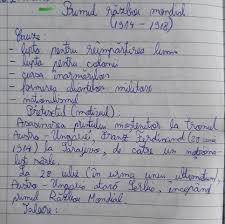 Primul război mondial
(1914 - 1918)
Cauze:
- lupta pentru reîmpărțirea lumii
- lupta pentru colonii
- cursa înarmărilor
- formarea alianțelor militare
- naționalismul
Pretextul (motivul):
Asasinarea prințului moștenitor la tronul
Austro-Ungariei, Franz Ferdinand (28 iunie
1914) la Sarajevo, de către un
sârb.
La 28 iulie (în urma unui ultimatum,
Austro-Ungaria atacă Serbia, începând
primul Război Mondial
Tabere: